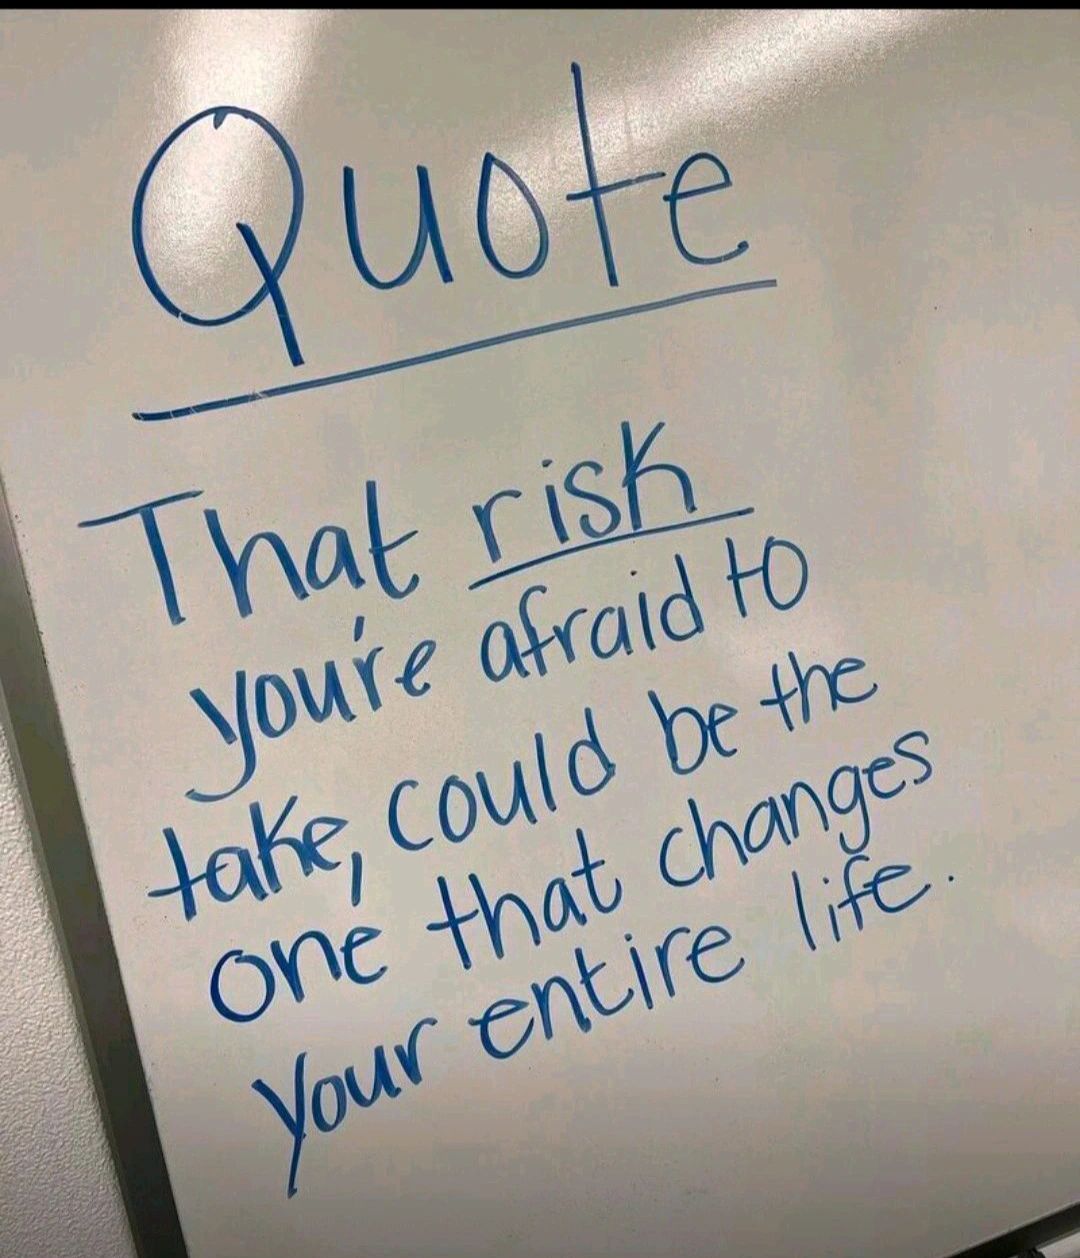 Quote
That risk
you're afraid to
take, could be the
one that changes
your entire life.